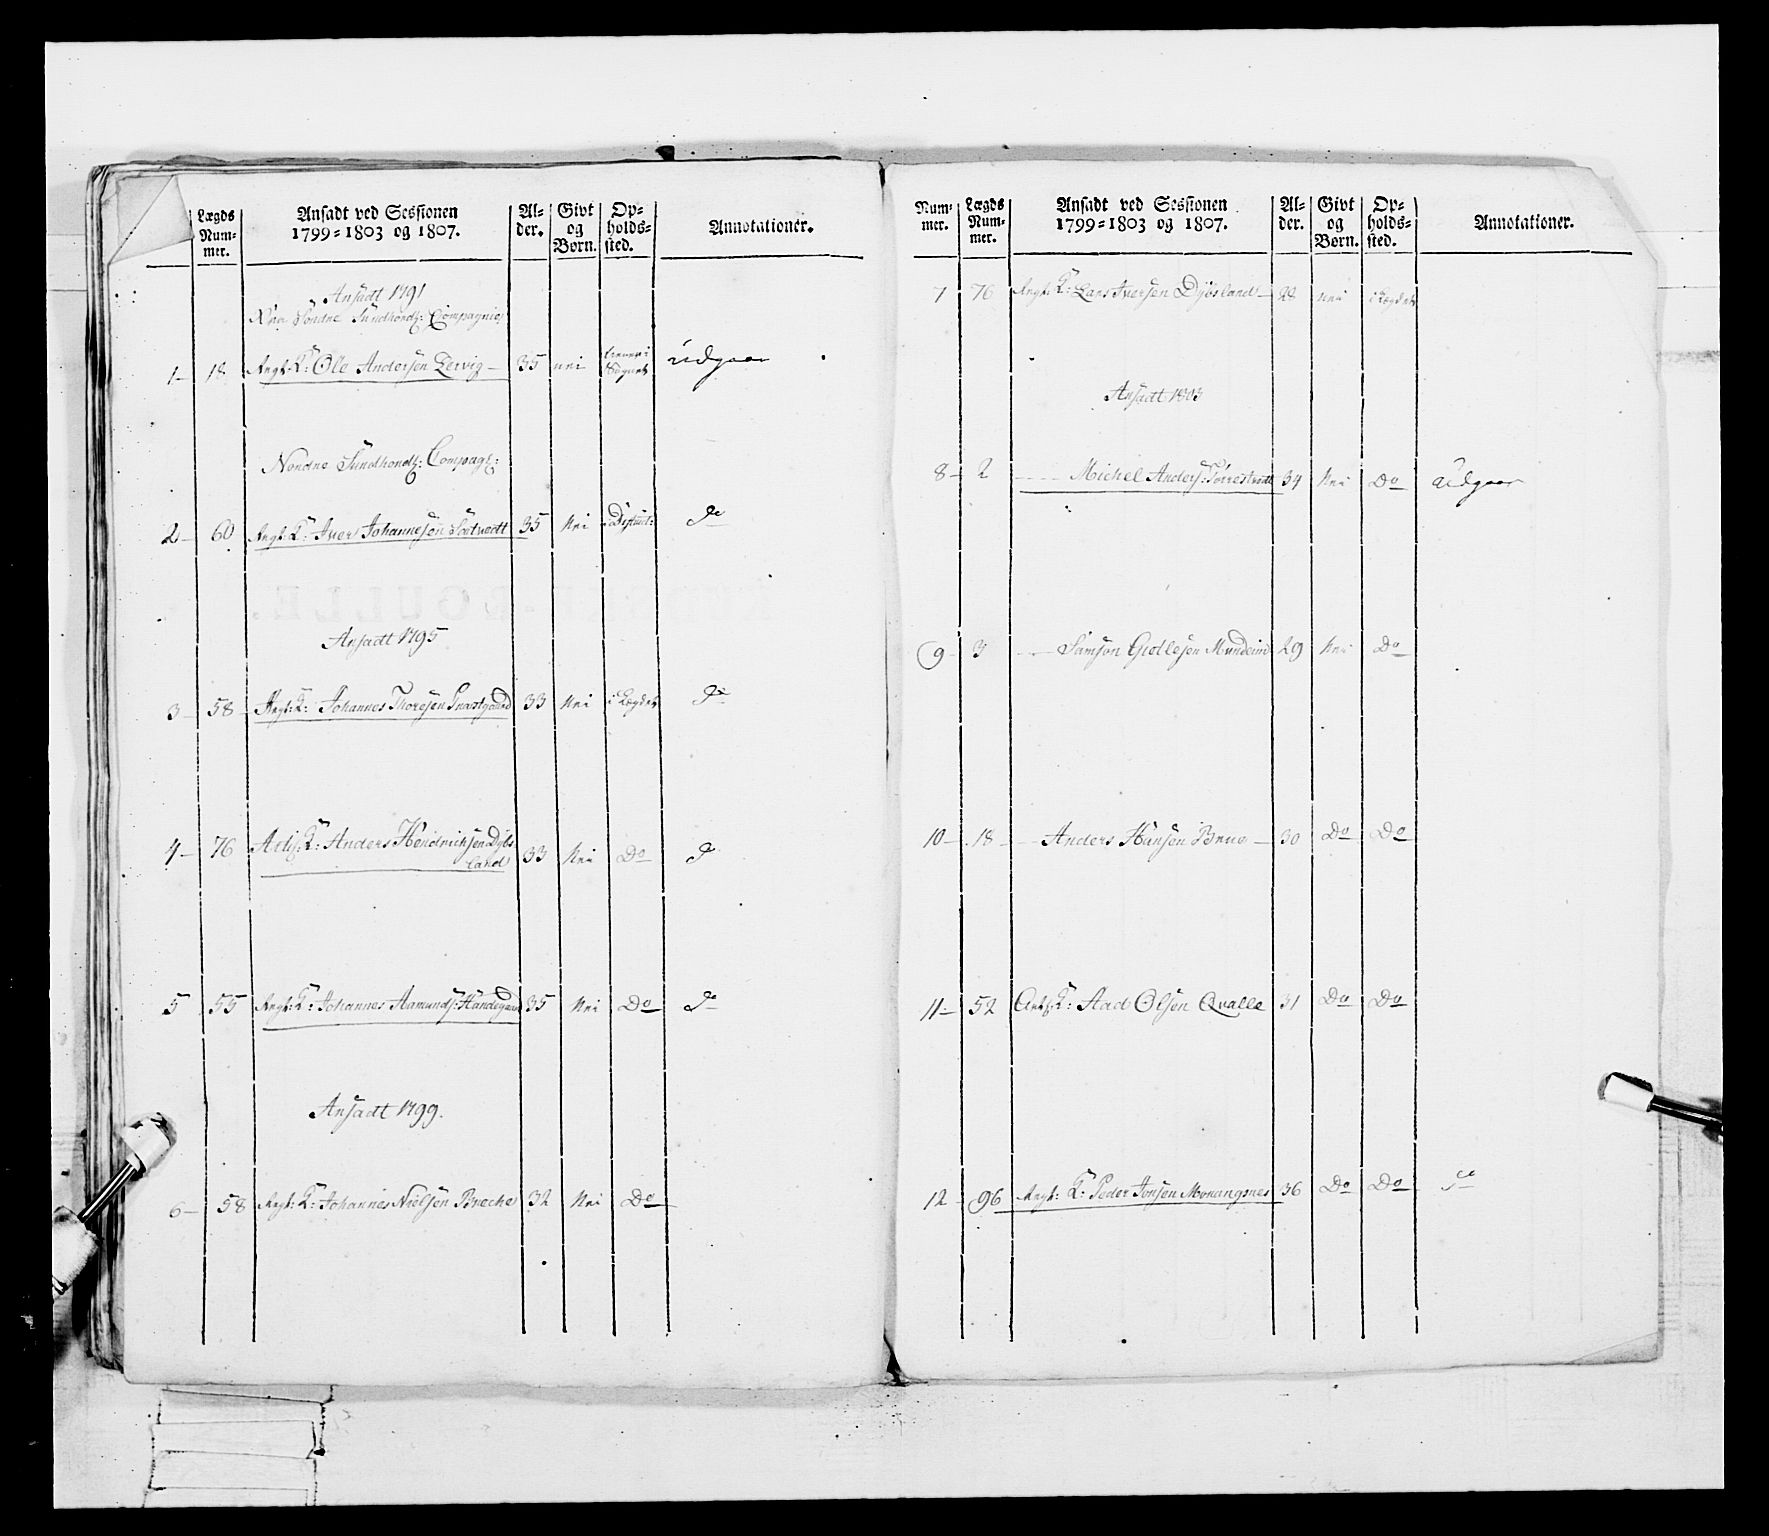 Lægds Num- mer. Ansadt ved Sessionen 1799=1803 og 1807. Al- der. Givt og Børn. Op- holds- sted. Annotationer.
Ansadt 1791
Søndre Sundhordl: Compagnie
1 18 Angt: K: Ole Andersen Lervig 35 nei Sognet udgaar
Nordre Sundhordl: Compagt:
2 60 Angt: K: Iver Johannesen 35 Nei i District: Do
Ansadt 1795
3 58 Angt: K: Johannes Thoresen 33 Nei i Lægdet Do
4 76 K: Anders Hendrichsen Dybs
land 33 Nei Do Do
5 55 Angt: K: Johannes Aamunds: Handegaard 35 Nei Do Do
Ansadt 1799.
6 58 Angt: K: Johannes Nielsen Breche 32 Nei Do
Num- mer. Lægds Num- mer. Ansadt ved Sessionen 1799=1803 og 1807. Al- der. Givt og Børn. Op- holds- sted. Annotationer.
7 76 Angt: K: Lars Iversen Dybsland 28 nei i Lægdet
Ansadt 1803
8 2 Michel Anders: 34 Nei Do udgaar
9 3 Samson Giellesen Mundeim 29 Nei Do
10 18 Anders Hansen Brue 30 Do Do
11 52 K: Aad Olsen Qvalle 31 Do Do
12 96 Angt: K: Peder Jonsen 36 Do Do Do